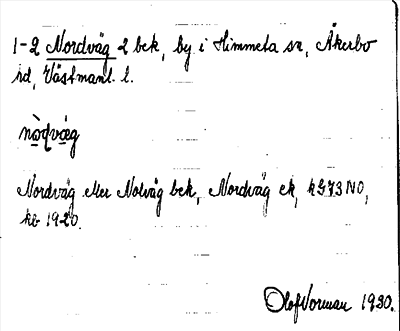 1-2 Nordväg 2 bek, by i Himmeta sn, Åkerbo
hd, Västmanl. l.
nọ̀ḍväg
Nordväg eller Nolväg bek, Nordväg ek, k 273 NO,
kb 1920.
Olof Norman 1930.